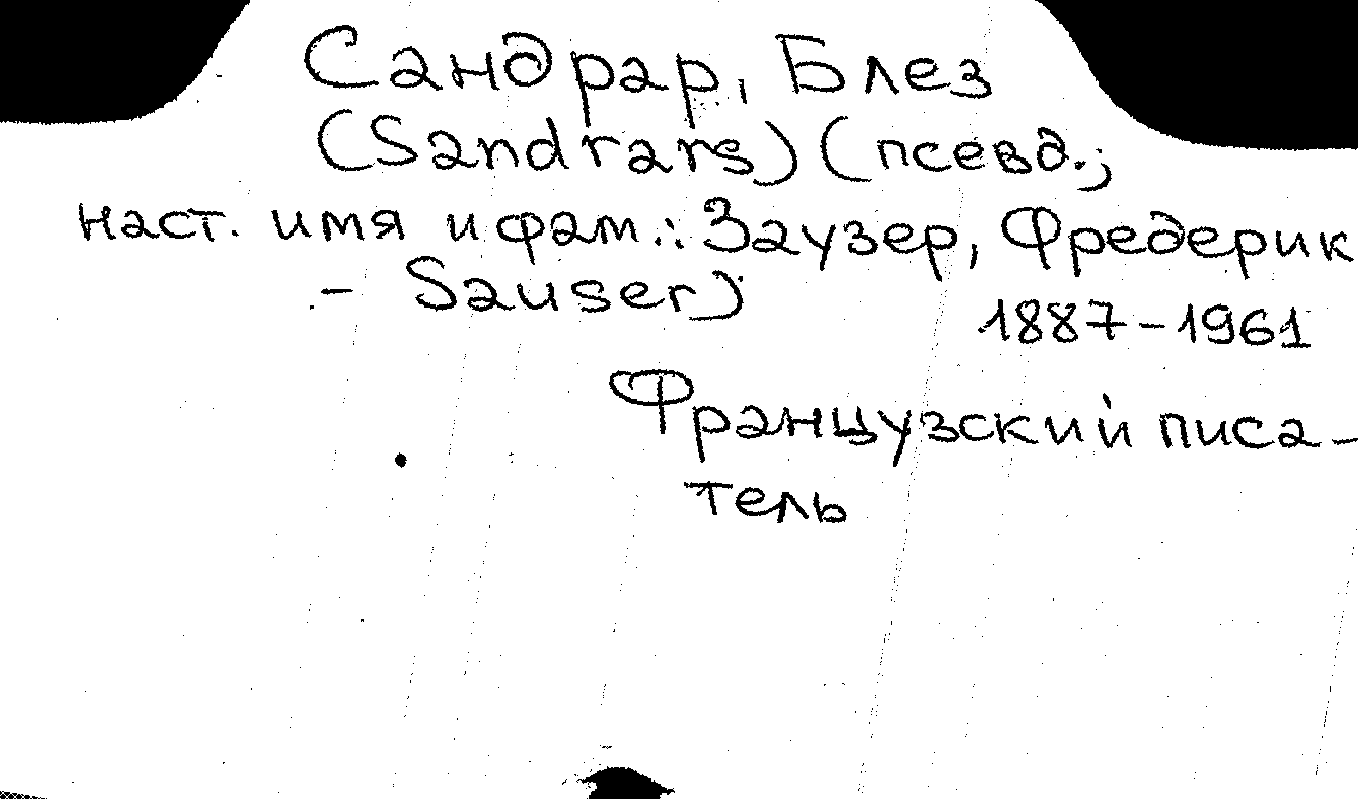 Сандрар, Блез
(Sandrars) (псевд.;
наст. имя и фам.: Заузер, Фредерик
- Sauser)
1887-1961
Французский писа-
тель